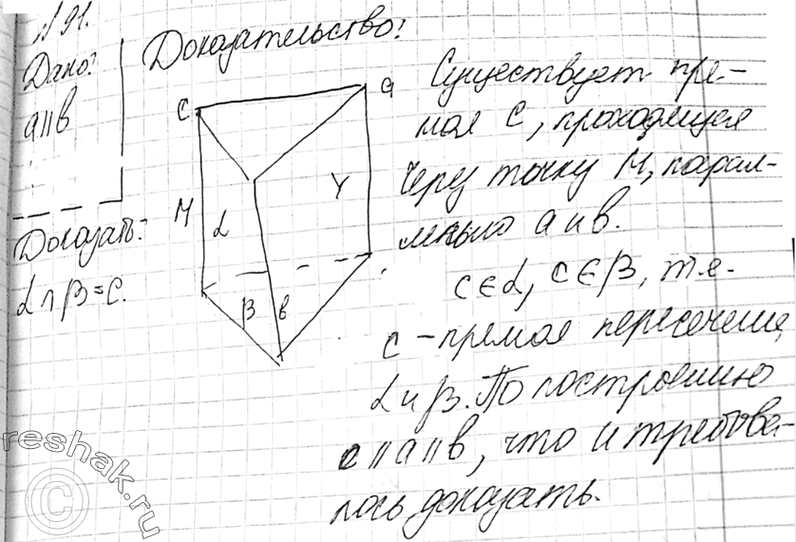 N 91.
Дано:
a∥b
Доказать:
α∩β=c.
Доказательство:
C
a
M
α
γ
β
b
Существует пря-
мая C, проходящая
через точку M, парал-
лельно a и b.
c∈α, c∈β, т.е.
c – прямая пересечения
α и β. По построению
c∥a∥b, что и требова-
лось доказать.
reshak.ru
©